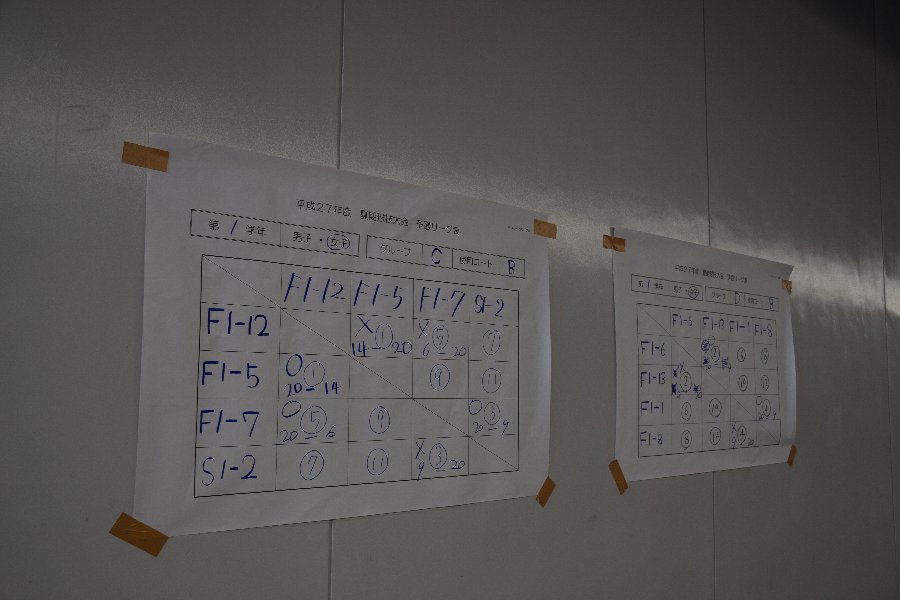 平成27年度 夏期球技大会 予選リーグ表
第 1 学年 男子・女子 グループ C 使用コート B
F1-12 F1-5 F1-7 S1-2
F1-12 X ① 14-20 X ⑤ 6-20 ⑦
F1-5 O ① 20-14 ⑨ ⑪
F1-7 O ⑤ 20-6 ⑨ O ③ 20-9
S1-2 ⑦ ⑪ X ③ 9-20
平成27年度 夏期球技大会 予選リーグ表
第 1 学年 男子・女子 グループ D 使用コート B
F1-6 F1-13 F1-1 F1-8
F1-6 ② ⑥ ⑧
F1-13 ② ⑩ ⑫
F1-1 ⑥ ⑩ O ④ 20-9
F1-8 ⑧ ⑫ X ④ 9-20